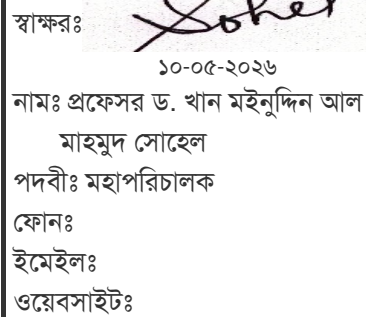 স্বাক্ষরঃ Sohel
১০-০৫-২০২৬
নামঃ প্রফেসর ড. খান মইনুদ্দিন আল
মাহমুদ সোহেল
পদবীঃ মহাপরিচালক
ফোনঃ
ইমেইলঃ
ওয়েবসাইটঃ